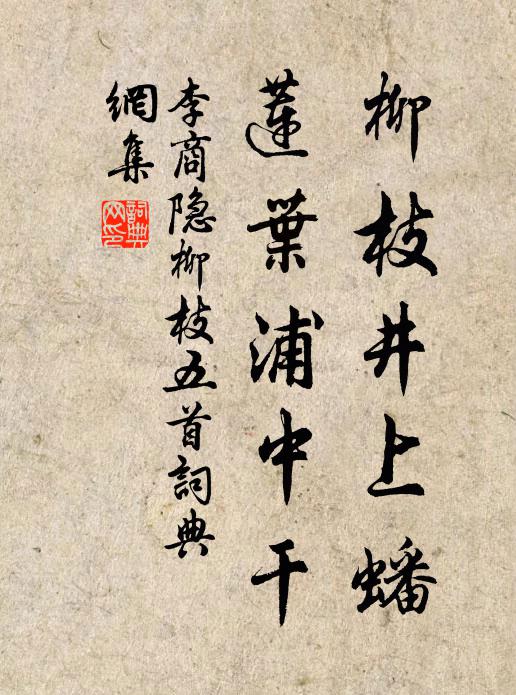 柳枝井上蟠
蓮葉浦中干
李商隐柳枝五首詞典
網集
詞典
网印